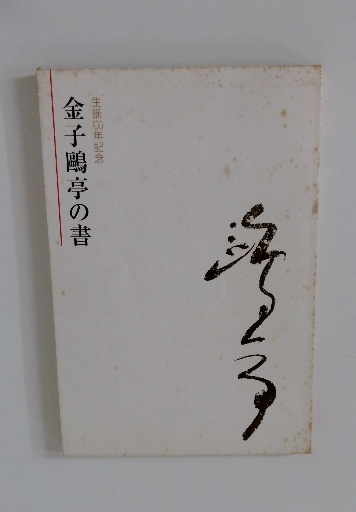 生誕100年記念
金子鷗亭の書
鷗亭